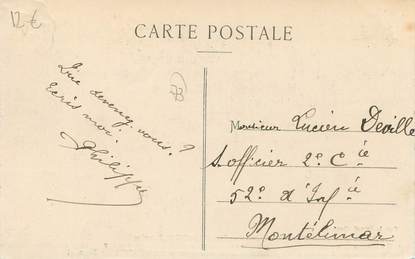 12 €
CARTE POSTALE
Que devenez vous ?
Ecris moi.
Philippe
Monsieur Lucien Deville
S. officier 2e Cie
52e d'Infie
Montélimar